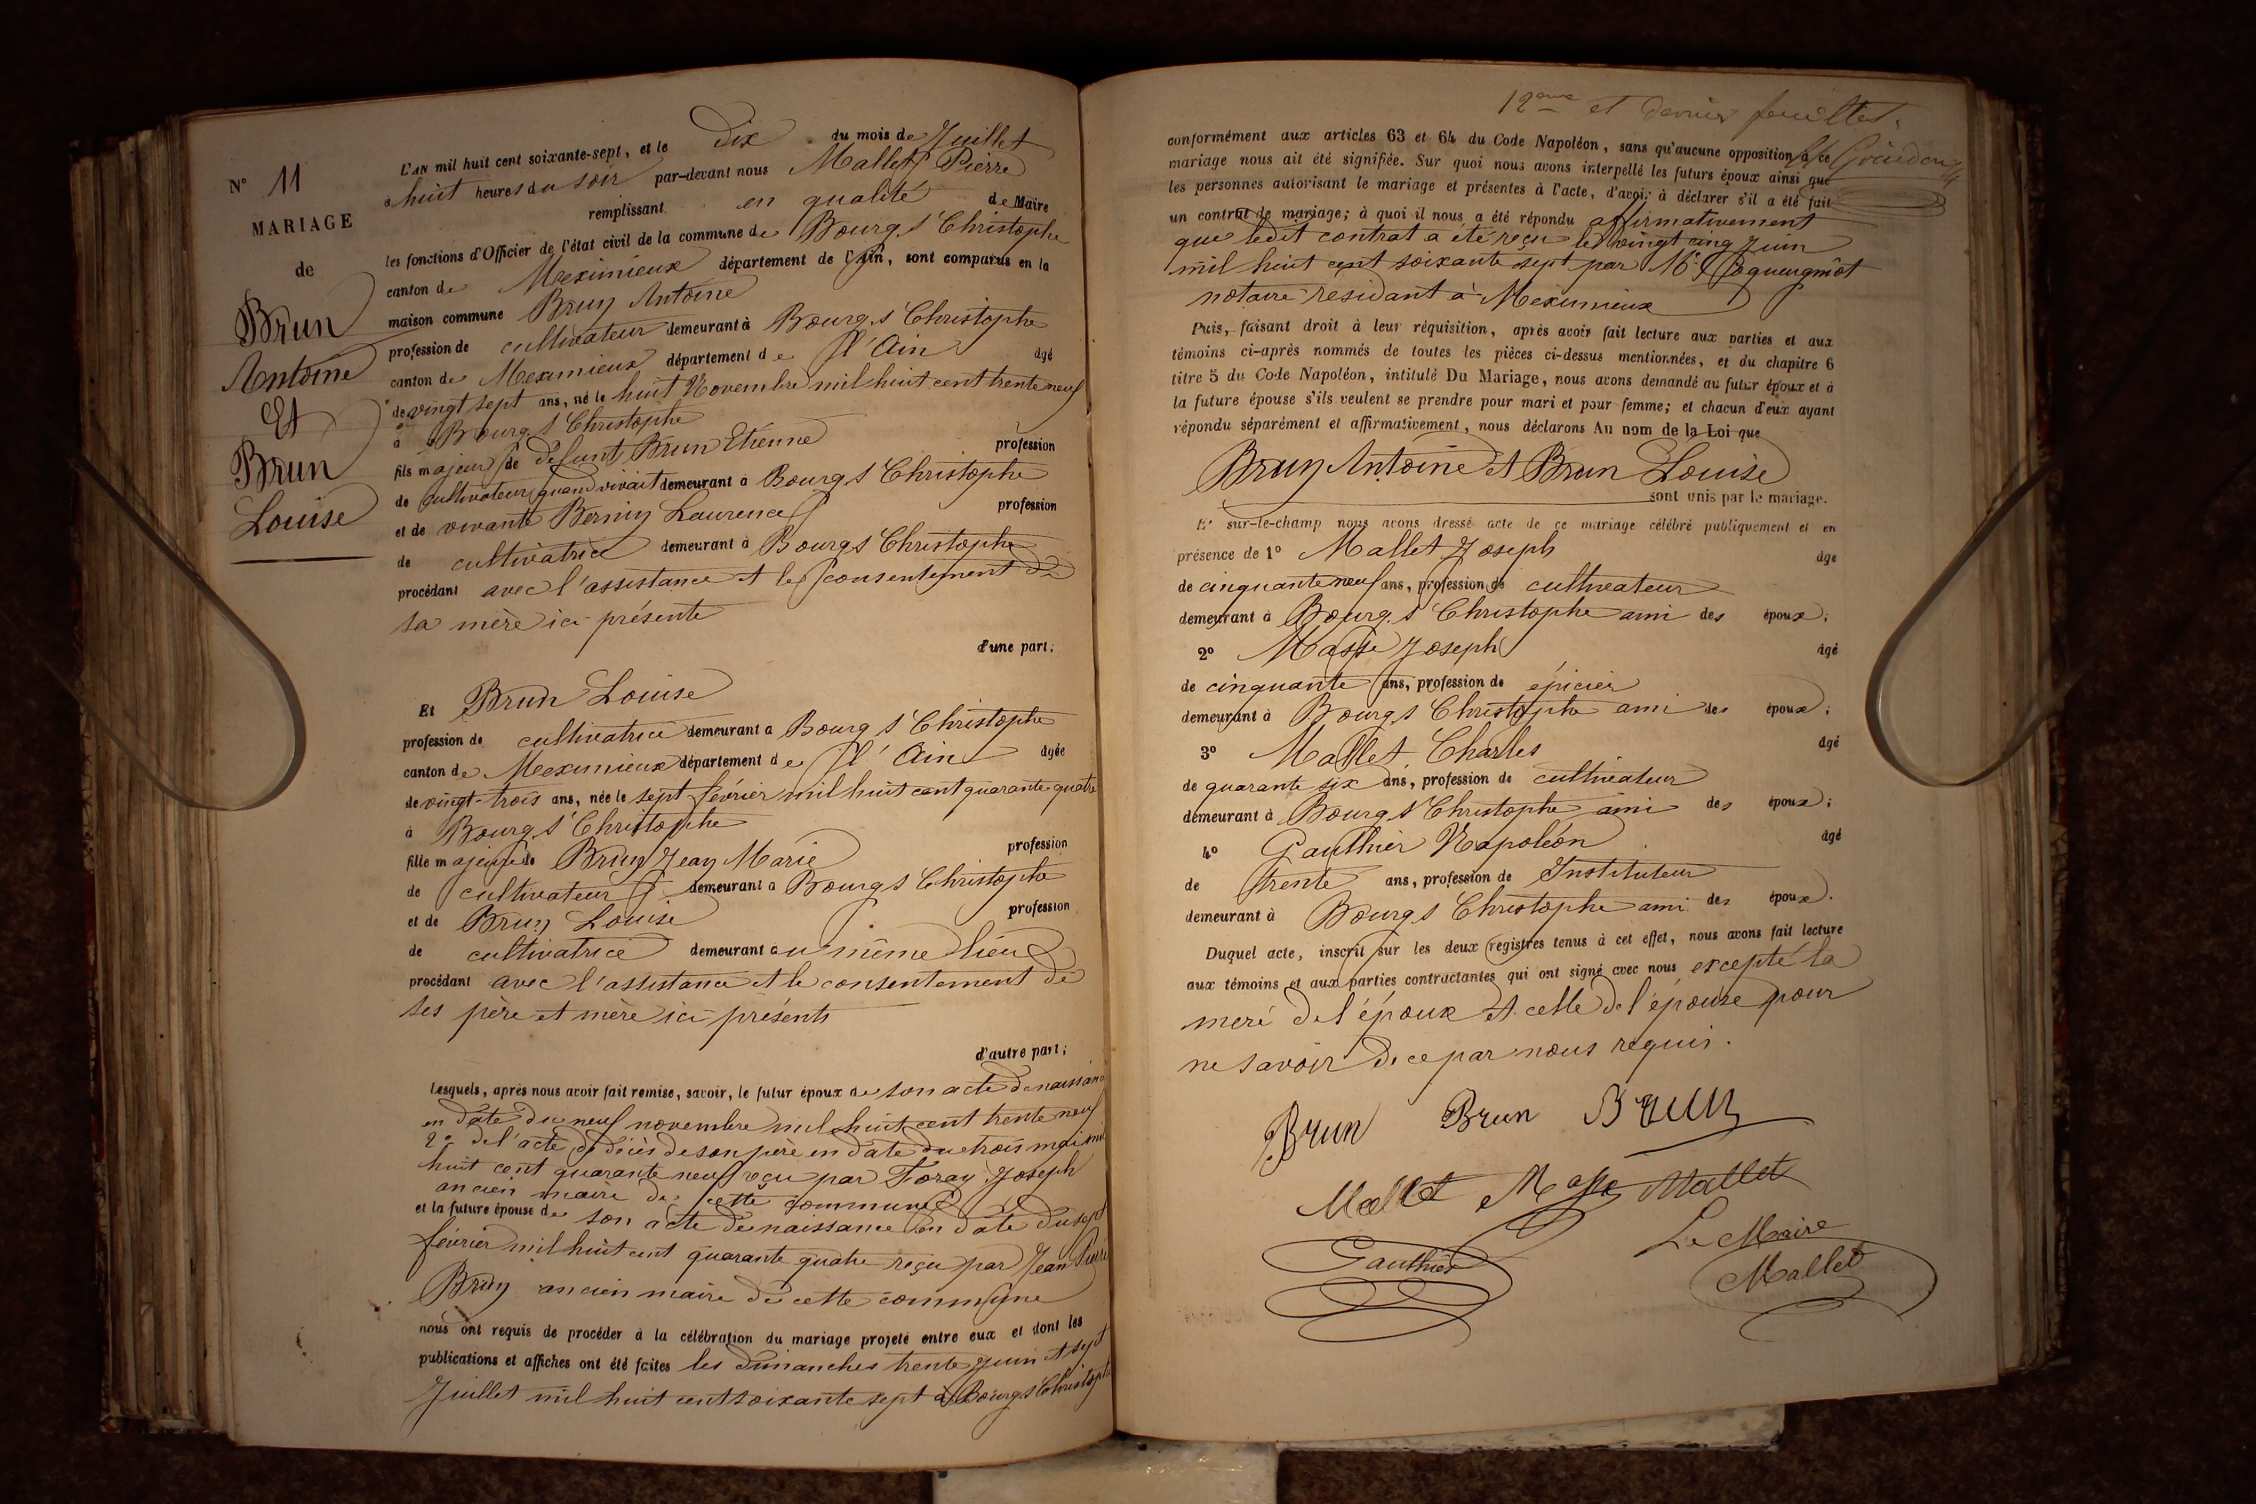 N° 11
MARIAGE
de
Brun
Antoine
Et
Brun
Louise
L'AN mil huit cent soixante-sept, et le dix du mois de Juillet
à huit heures du soir par-devant nous Mallet Pierre
remplissant en qualité de Maire
les fonctions d'Officier de l'état civil de la commune de Bourg St Christophe
canton de Meximieux département de l'Ain, sont comparus en la
maison commune Brun Antoine
profession de cultivateur demeurant à Bourg St Christophe
canton de Meximieux département de l'Ain âgé
de vingt sept ans, né le huit Novembre mil huit cent trente neuf
à Bourg St Christophe
fils majeur de défunt Brun Etienne profession
de cultivateur quand vivait demeurant à Bourg St Christophe
et de vivante Bernin Laurence profession
de cultivatrice demeurant à Bourg St Christophe
procédant avec l'assistance et le consentement de
sa mère ici présente
d'une part;
Et Brun Louise
profession de cultivatrice demeurant à Bourg St Christophe
canton de Meximieux département de l'Ain âgée
de vingt-trois ans, née le sept février mil huit cent quarante-quatre
à Bourg St Christophe
fille majeure de Brun Jean Marie profession
de cultivateur demeurant à Bourg St Christophe
et de Brun Louise profession
de cultivatrice demeurant au même lieu
procédant avec l'assistance et le consentement de
ses père et mère ici présents
d'autre part;
Lesquels, après nous avoir fait remise, savoir, le futur époux de son acte de naissance
en date du neuf novembre mil huit cent trente neuf
2° de l'acte de décès de son père en date du trois mai mil
huit cent quarante neuf reçu par Foray Joseph
ancien maire de cette commune
et la future épouse de son acte de naissance en date du sept
février mil huit cent quarante quatre reçu par Jean Pierre
Brun ancien maire de cette commune
nous ont requis de procéder à la célébration du mariage projeté entre eux et dont les
publications et affiches ont été faites les dimanches trente juin et sept
Juillet mil huit cent soixante sept à Bourg St Christophe
12eme et dernier feuillet.
conformément aux articles 63 et 64 du Code Napoléon, sans qu'aucune opposition à ce
mariage nous ait été signifiée. Sur quoi nous avons interpellé les futurs époux ainsi que
les personnes autorisant le mariage et présentes à l'acte, d'avoir à déclarer s'il a été fait
un contrat de mariage; à quoi il nous a été répondu affirmativement
que ledit contrat a été reçu le vingt cinq Juin
mil huit cent soixante sept par Me
notaire résidant à Meximieux
Puis, faisant droit à leur réquisition, après avoir fait lecture aux parties et aux
témoins ci-après nommés de toutes les pièces ci-dessus mentionnées, et du chapitre 6
titre 5 du Code Napoléon, intitulé Du Mariage, nous avons demandé au futur époux et à
la future épouse s'ils veulent se prendre pour mari et pour femme; et chacun d'eux ayant
répondu séparément et affirmativement, nous déclarons Au nom de la Loi que
Brun Antoine et Brun Louise
sont unis par le mariage.
Et sur-le-champ nous avons dressé acte de ce mariage célébré publiquement et en
présence de 1° Mallet Joseph âgé
de cinquante neuf ans, profession de cultivateur
demeurant à Bourg St Christophe ami des époux;
2° Masse Joseph âgé
de cinquante ans, profession de épicier
demeurant à Bourg St Christophe ami des époux;
3° Mallet Charles âgé
de quarante six ans, profession de cultivateur
demeurant à Bourg St Christophe ami des époux;
4° Gauthier Napoléon âgé
de trente ans, profession de Instituteur
demeurant à Bourg St Christophe ami des époux.
Duquel acte, inscrit sur les deux registres tenus à cet effet, nous avons fait lecture
aux témoins et aux parties contractantes qui ont signé avec nous excepté la
mère de l'époux et celle de l'épouse pour
ne savoir de ce par nous requis.
Brun Brun Brun
Mallet Masse Mallet
Gauthier
Le Maire
Mallet